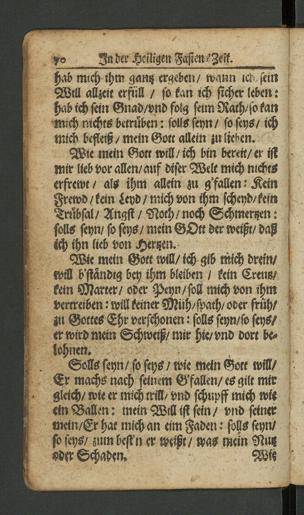 90 In der Heiligen Fasten-Zeit.
hab mich jhm gantz ergeben/ wann ich sein
Will allzeit erfüll / so kan ich sicher leben:
hab ich sein Gnad/vnd folg seim Rath/so kan
mich nichts betrüben: solls seyn/ so seys/ ich
mich befleiß/ mein Gott allein zu lieben.
Wie mein Gott will/ ich bin bereit/ er ist
mir lieb vor allen/auf diser Welt mich nichts
erfrewt / als jhm allein zu g'fallen: Kein
Frewd/kein Leyd/ mich von jhm scheyd/kein
Trübsal/ Angst/ Noth/ noch Schmertzen:
solls seyn/ so seys/ mein GOtt der weißt/ daß
ich jhn lieb von Hertzen.
Wie mein Gott will/ ich gib mich drein/
will b'ständig bey jhm bleiben / kein Creutz/
kein Marter/ oder Peyn/soll mich von jhm
vertreiben: will keiner Müh/spath/oder früh/
zu Gottes Ehr verschonen: solls seyn/so seys/
er wird mein Schweiß/ mir hie/vnd dort be-
lohnen.
Solls seyn/ so seys / wie mein Gott will/
Er machs nach seinem G'fallen/ es gilt mir
gleich/ wie er mich will/ vnd schupff mich wie
ein Ballen: mein Will ist sein / vnd seiner
mein/Er hat mich an eim Faden: solls seyn/
so seys/ zum best'n er weißt/ was mein Nutz
oder Schaden. Wie